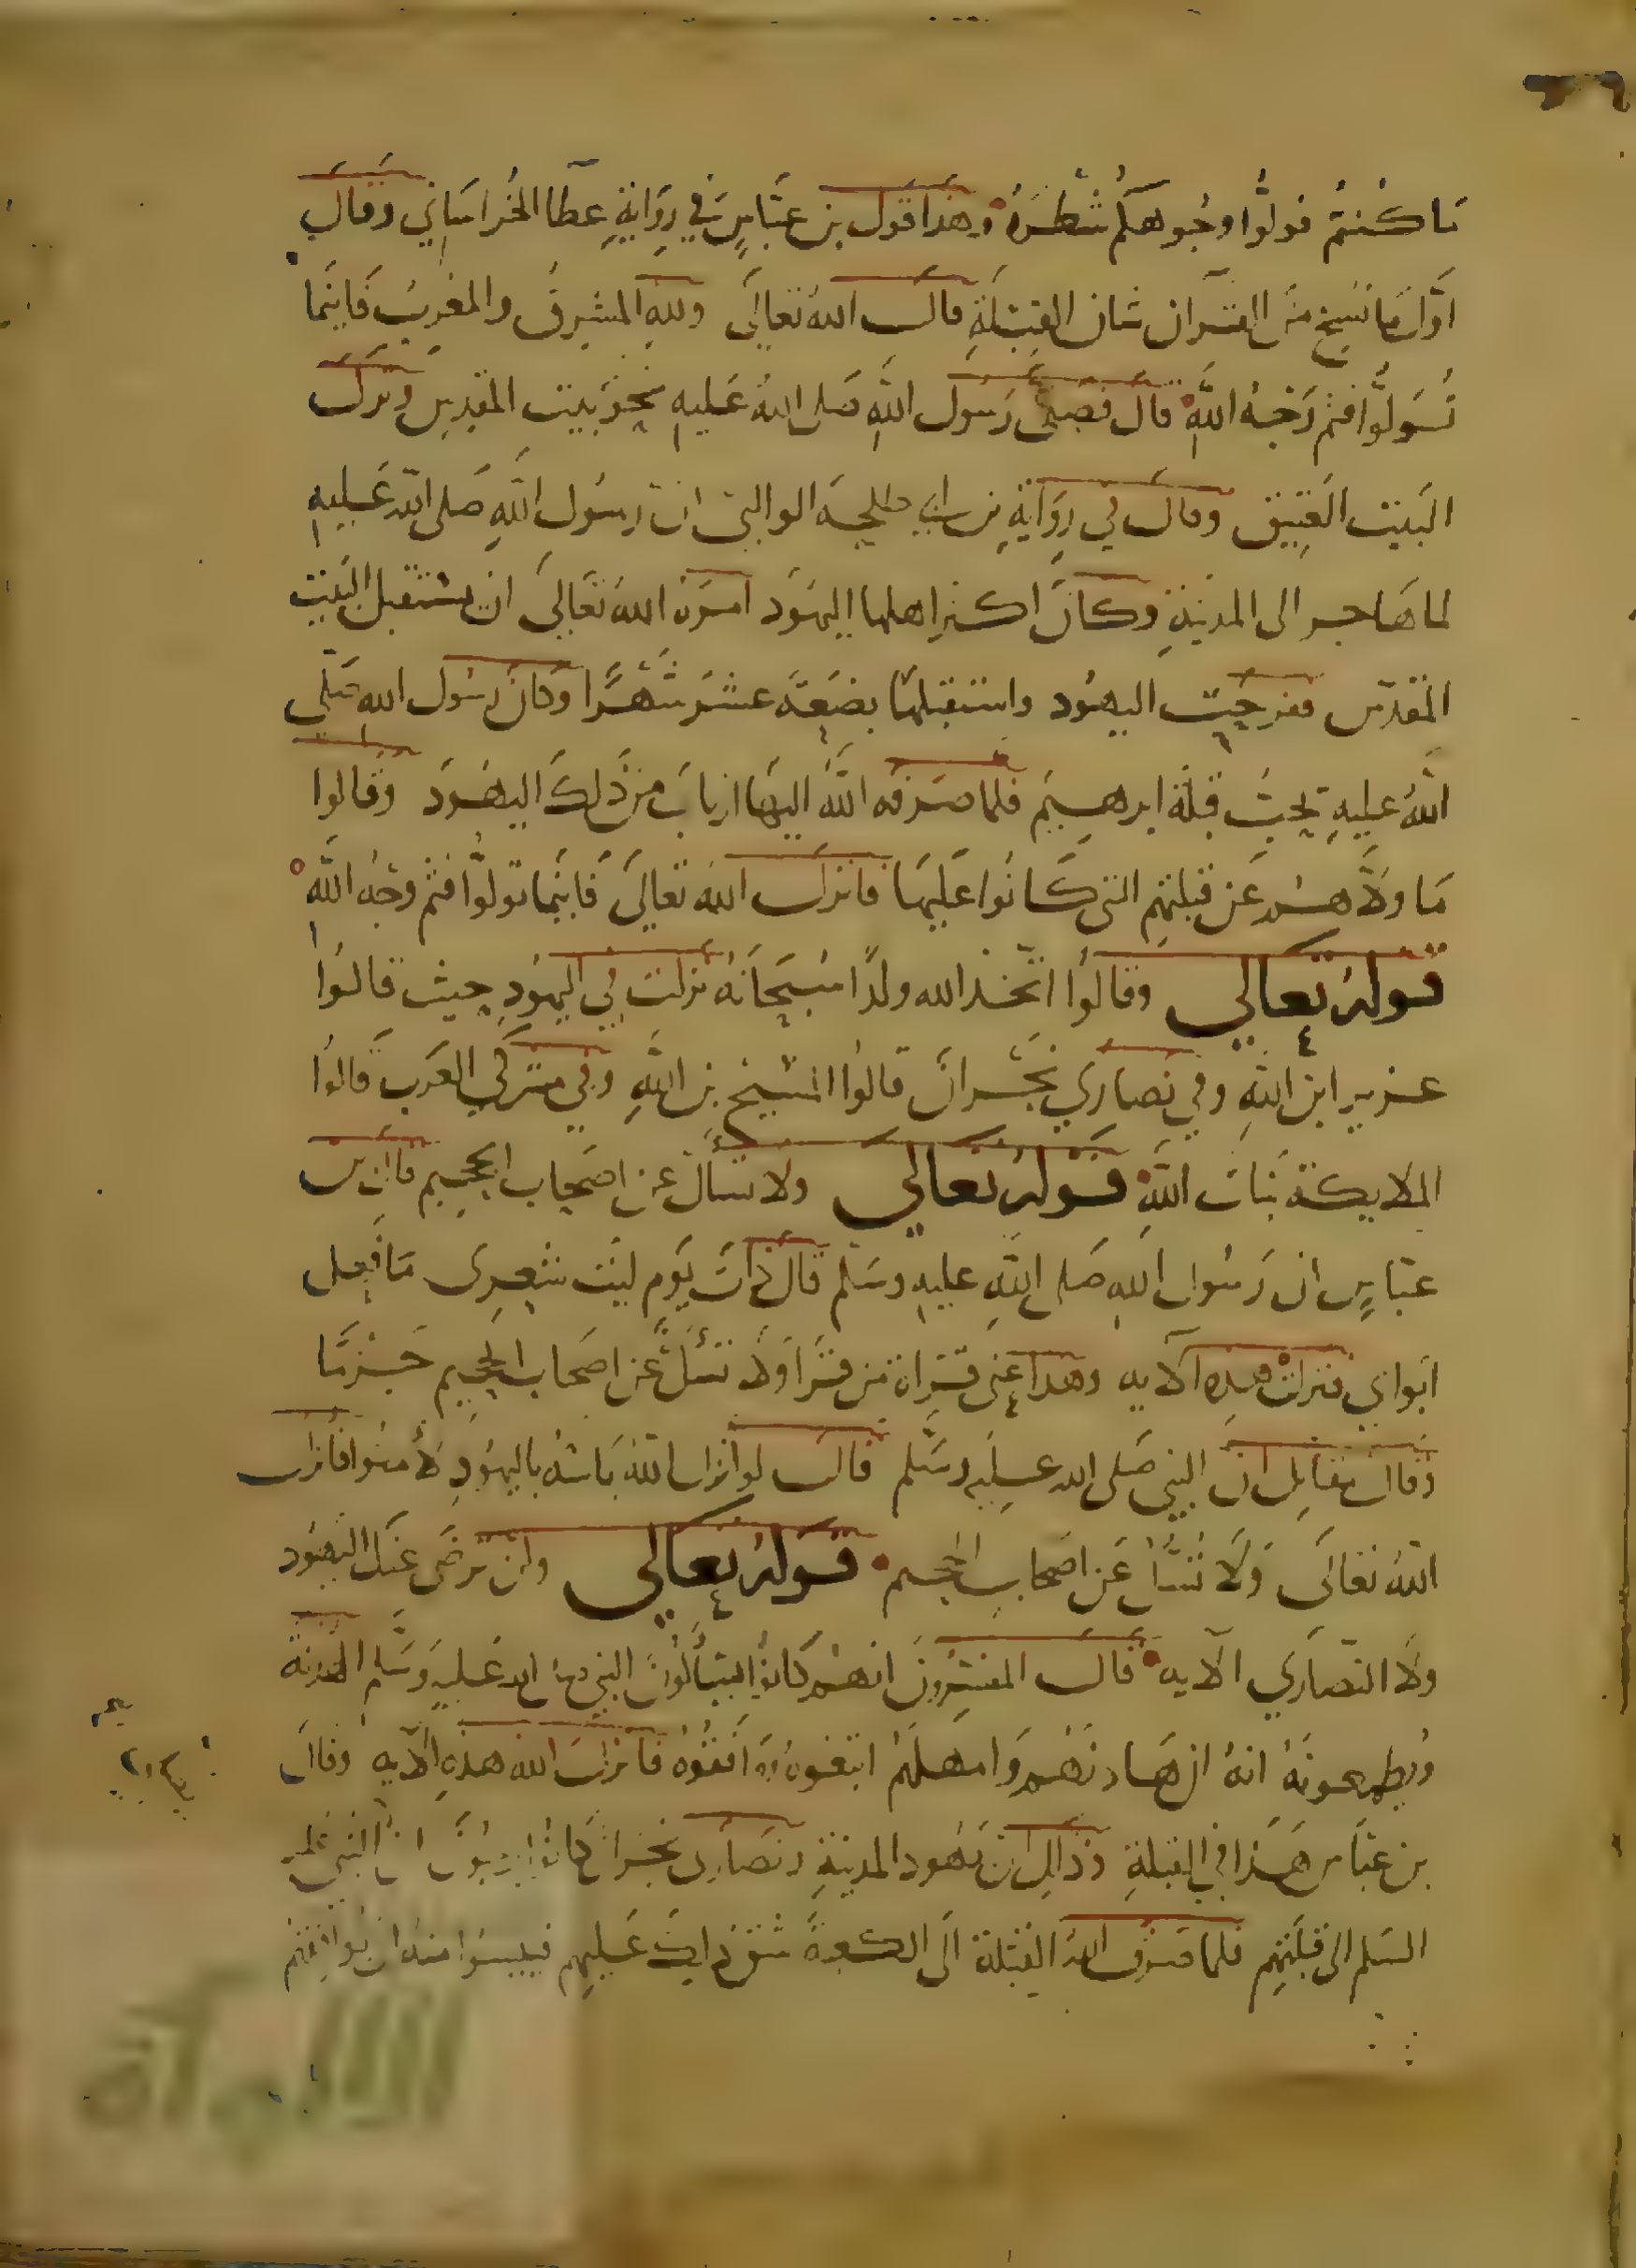 ما كنتم فولوا وجوهكم شطره وهذا قول بن عباس في رواية عطا الخراساني وقال
اول ما نسخ من القران شان القبلة قال الله تعالى ولله المشرق والمغرب فاينما
تولوا فثم وجه الله قال فصلى رسول الله صلى الله عليه نحو بيت المقدس وترك
البيت العتيق وقال في رواية بن ابي طلحة الوالبي ان رسول الله صلى الله عليه
لما هاجر الى المدينة وكان اكثر اهلها اليهود امره الله تعالى ان يستقبل البيت
المقدس ففرحت اليهود واستقبلها بضعة عشر شهرا وكان رسول الله صلى
الله عليه يحب قبلة ابرهيم فلما صرفه الله اليها ارتاب من ذلك اليهود وقالوا
ما ولاهم عن قبلتهم التي كانوا عليها فانزل الله تعالى فاينما تولوا فثم وجه الله
قوله تعالى وقالوا اتخذ الله ولدا سبحانه نزلت في اليهود حيث قالوا
عزير ابن الله وفي نصارى نجران قالوا المسيح بن الله وفي مشركي العرب قالوا
الملايكة بنات الله قوله تعالى ولا تسال عن اصحاب الجحيم قال بن
عباس ان رسول الله صلى الله عليه وسلم قال ذات يوم ليت شعرى ما فعل
ابواي فنزلت هذه الايه وهذا على قراة من قرا ولا تسئل عن اصحاب الجحيم جزما
وقال مقاتل ان النبي صلى الله عليه وسلم قال لو انزل الله باسه باليهود لامنوا فانزل
الله تعالى ولا تسال عن اصحاب الجحيم قوله تعالى ولن ترضى عنك اليهود
ولا النصارى الايه قال المفسرون انهم كانوا يسالون النبي صلى الله عليه وسلم الهدنة
ويطمعونه انه ان هادنهم وامهلهم اتبعوه ووافقوه فانزل الله هذه الايه وقال
بن عباس هذا في القبلة وذلك ان يهود المدينة ونصارى نجران كانوا يرجون ان النبي
السلم الى قبلتهم فلما صرف الله القبلة الى الكعبة شق ذلك عليهم فييسوا منه ان يوافقهم